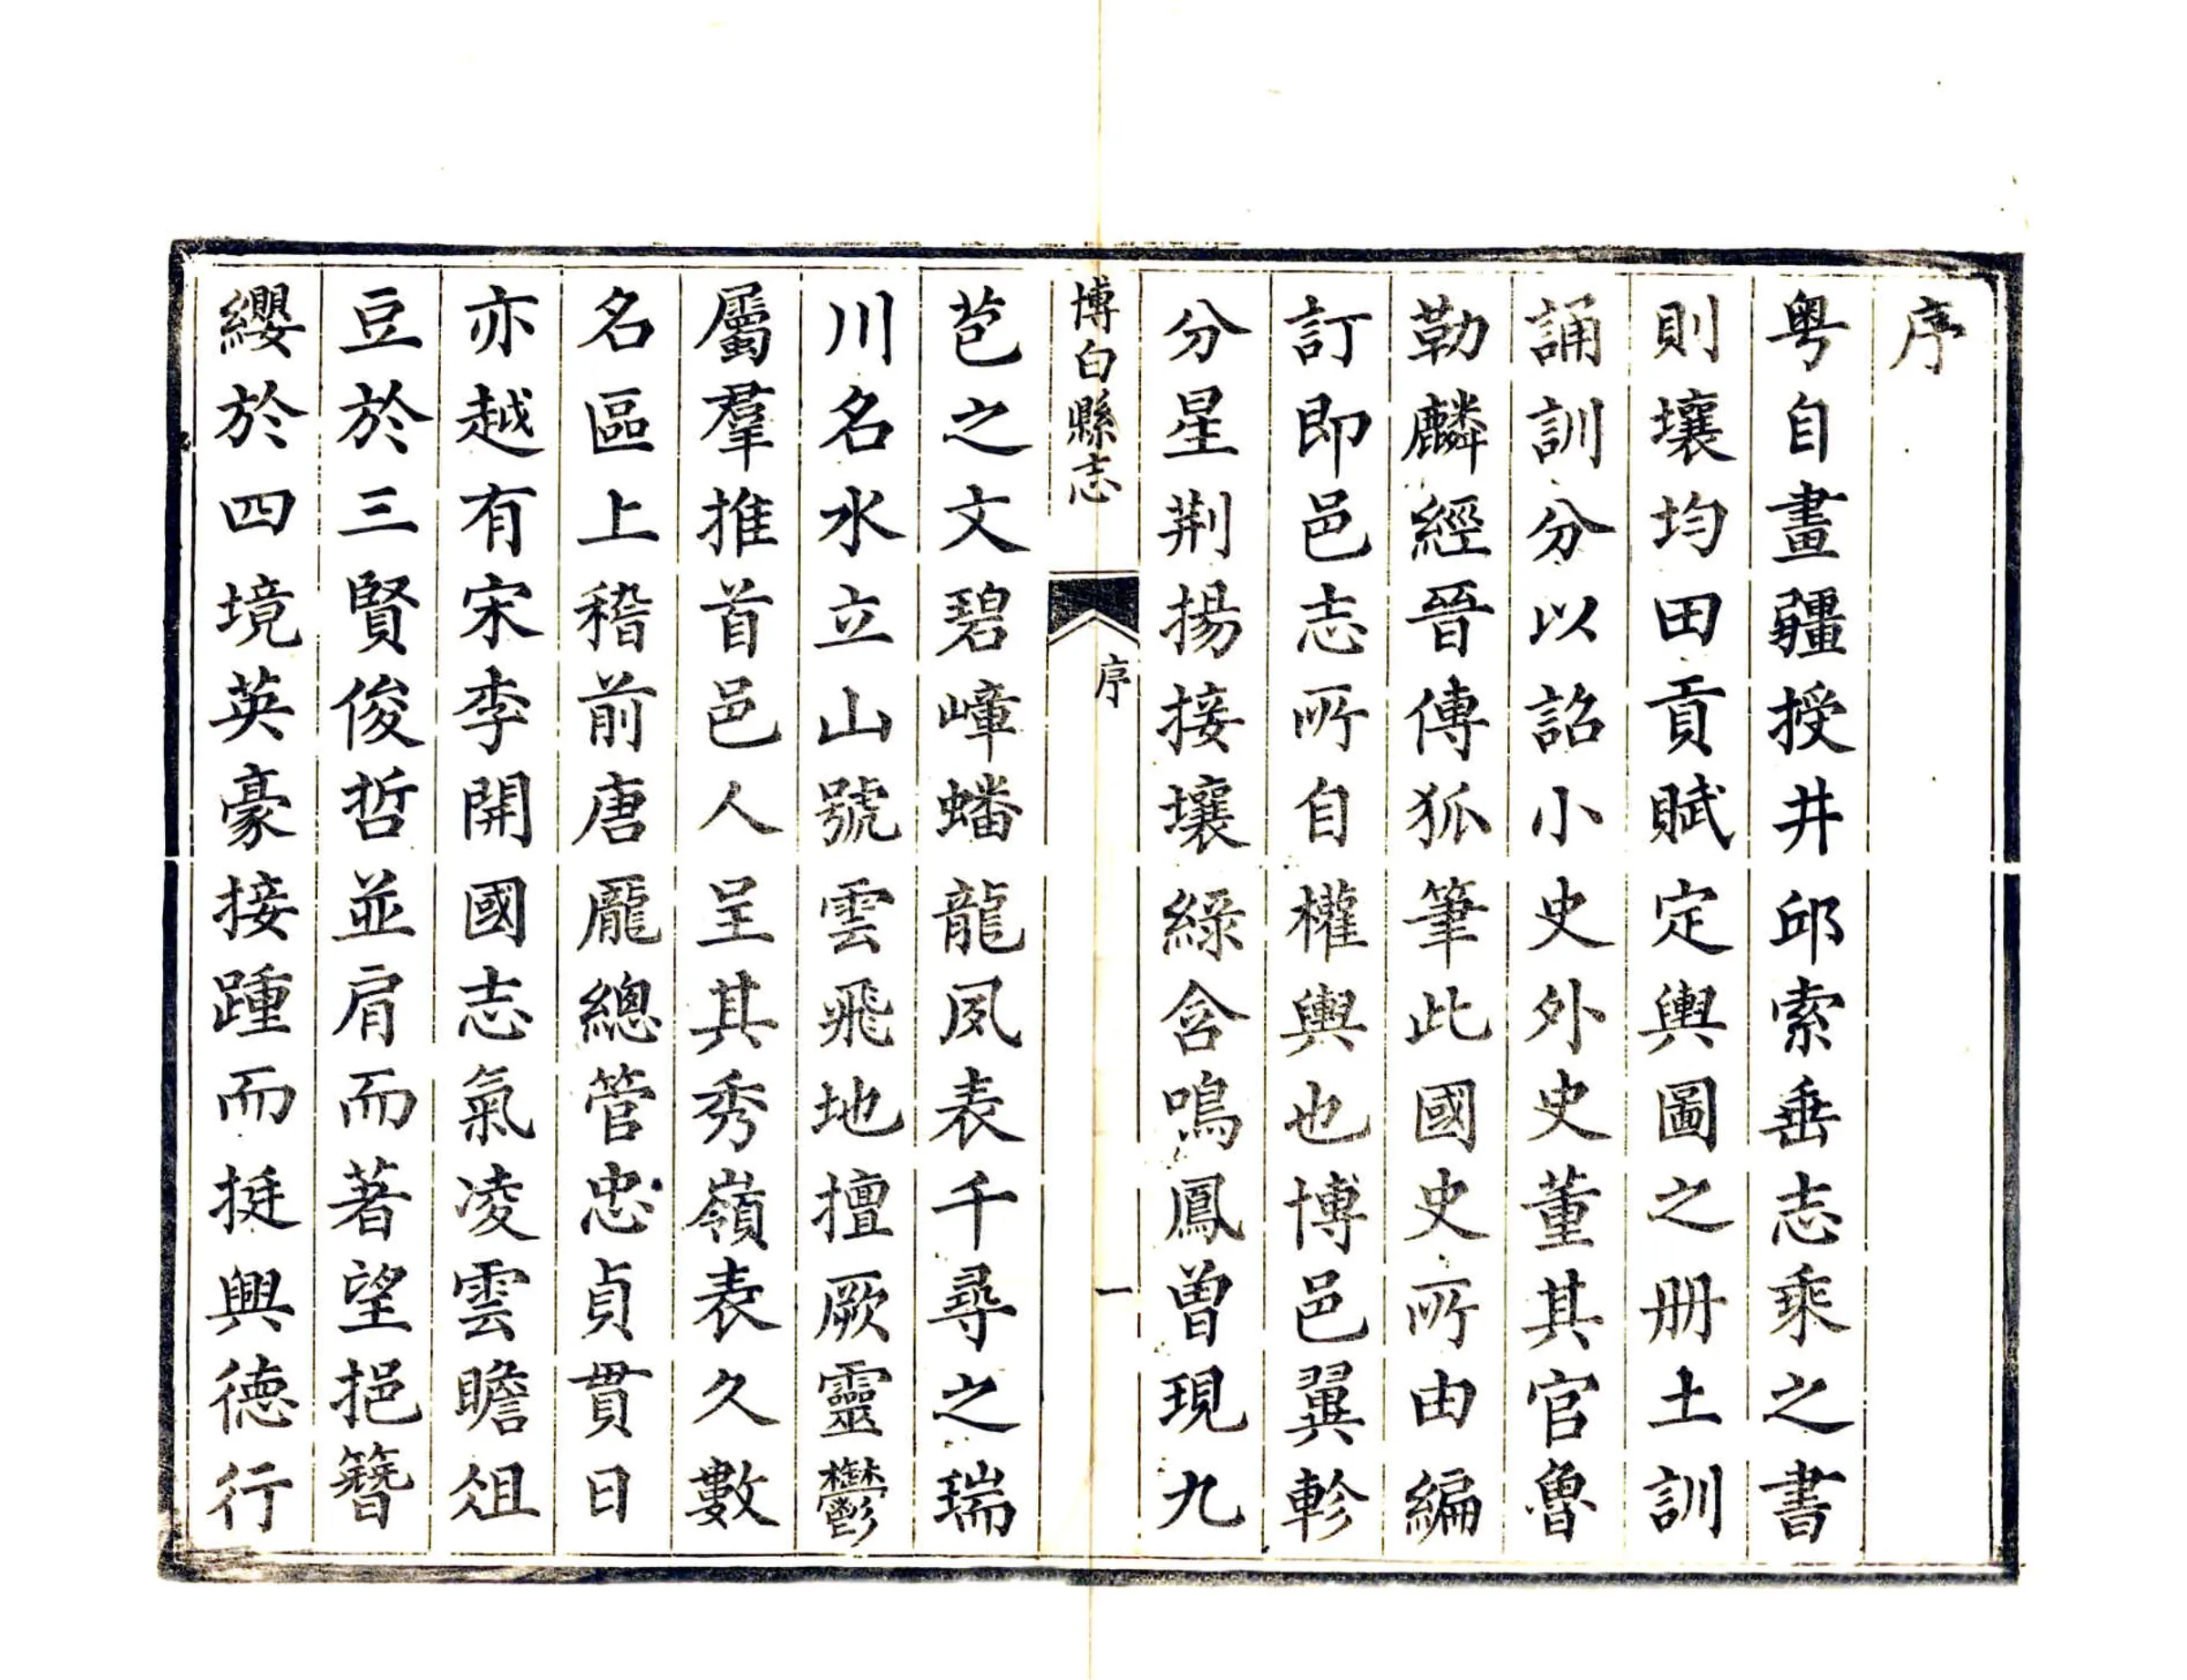 序
粤自畫疆授井邱索垂志乘之書
則壤均田貢賦定輿圖之册土訓
誦訓分以詔小史外史董其官魯
勒麟經晉傳狐筆此國史所由編
訂即邑志所自權輿也博邑翼軫
分星荆揚接壤綠含鳴鳳曾現九
博白縣志
序
一
苞之文碧嶂蟠龍夙表千尋之瑞
川名水立山號雲飛地擅厥靈鬱
屬羣推首邑人呈其秀嶺表久數
名區上稽前唐龎總管忠貞貫日
亦越有宋李開國志氣凌雲瞻俎
豆於三賢俊哲並肩而著望挹簪
纓於四境英豪接踵而挺興德行